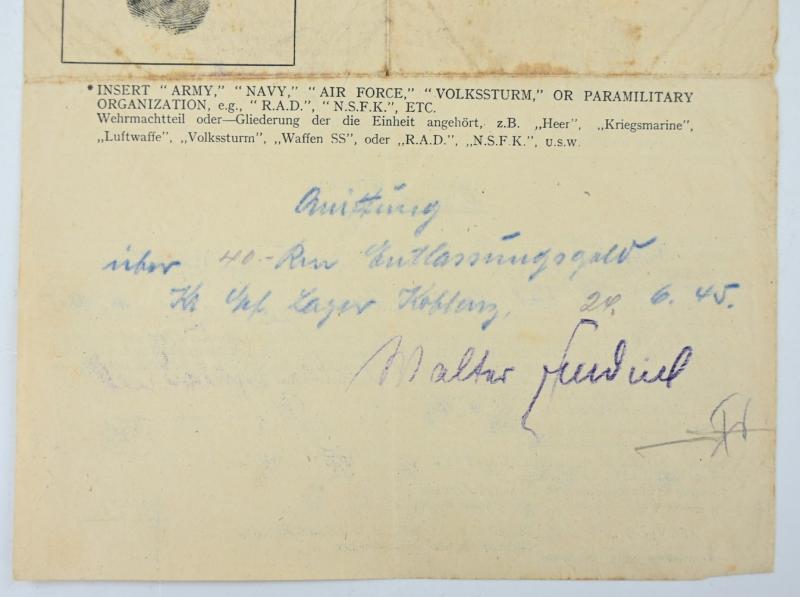 *INSERT "ARMY," "NAVY," "AIR FORCE," "VOLKSSTURM," OR PARAMILITARY
ORGANIZATION, e.g., "R.A.D.", "N.S.F.K.", ETC.
Wehrmachtteil oder—Gliederung der die Einheit angehört, z.B. „Heer", „Kriegsmarine",
„Luftwaffe", „Volkssturm", „Waffen SS", oder „R.A.D.", „N.S.F.K.", U.S.W.
Quittung
über 40.- Rm Entlassungsgeld
Kr Gef. Lager Koblenz, 20. 6. 45.
Walter